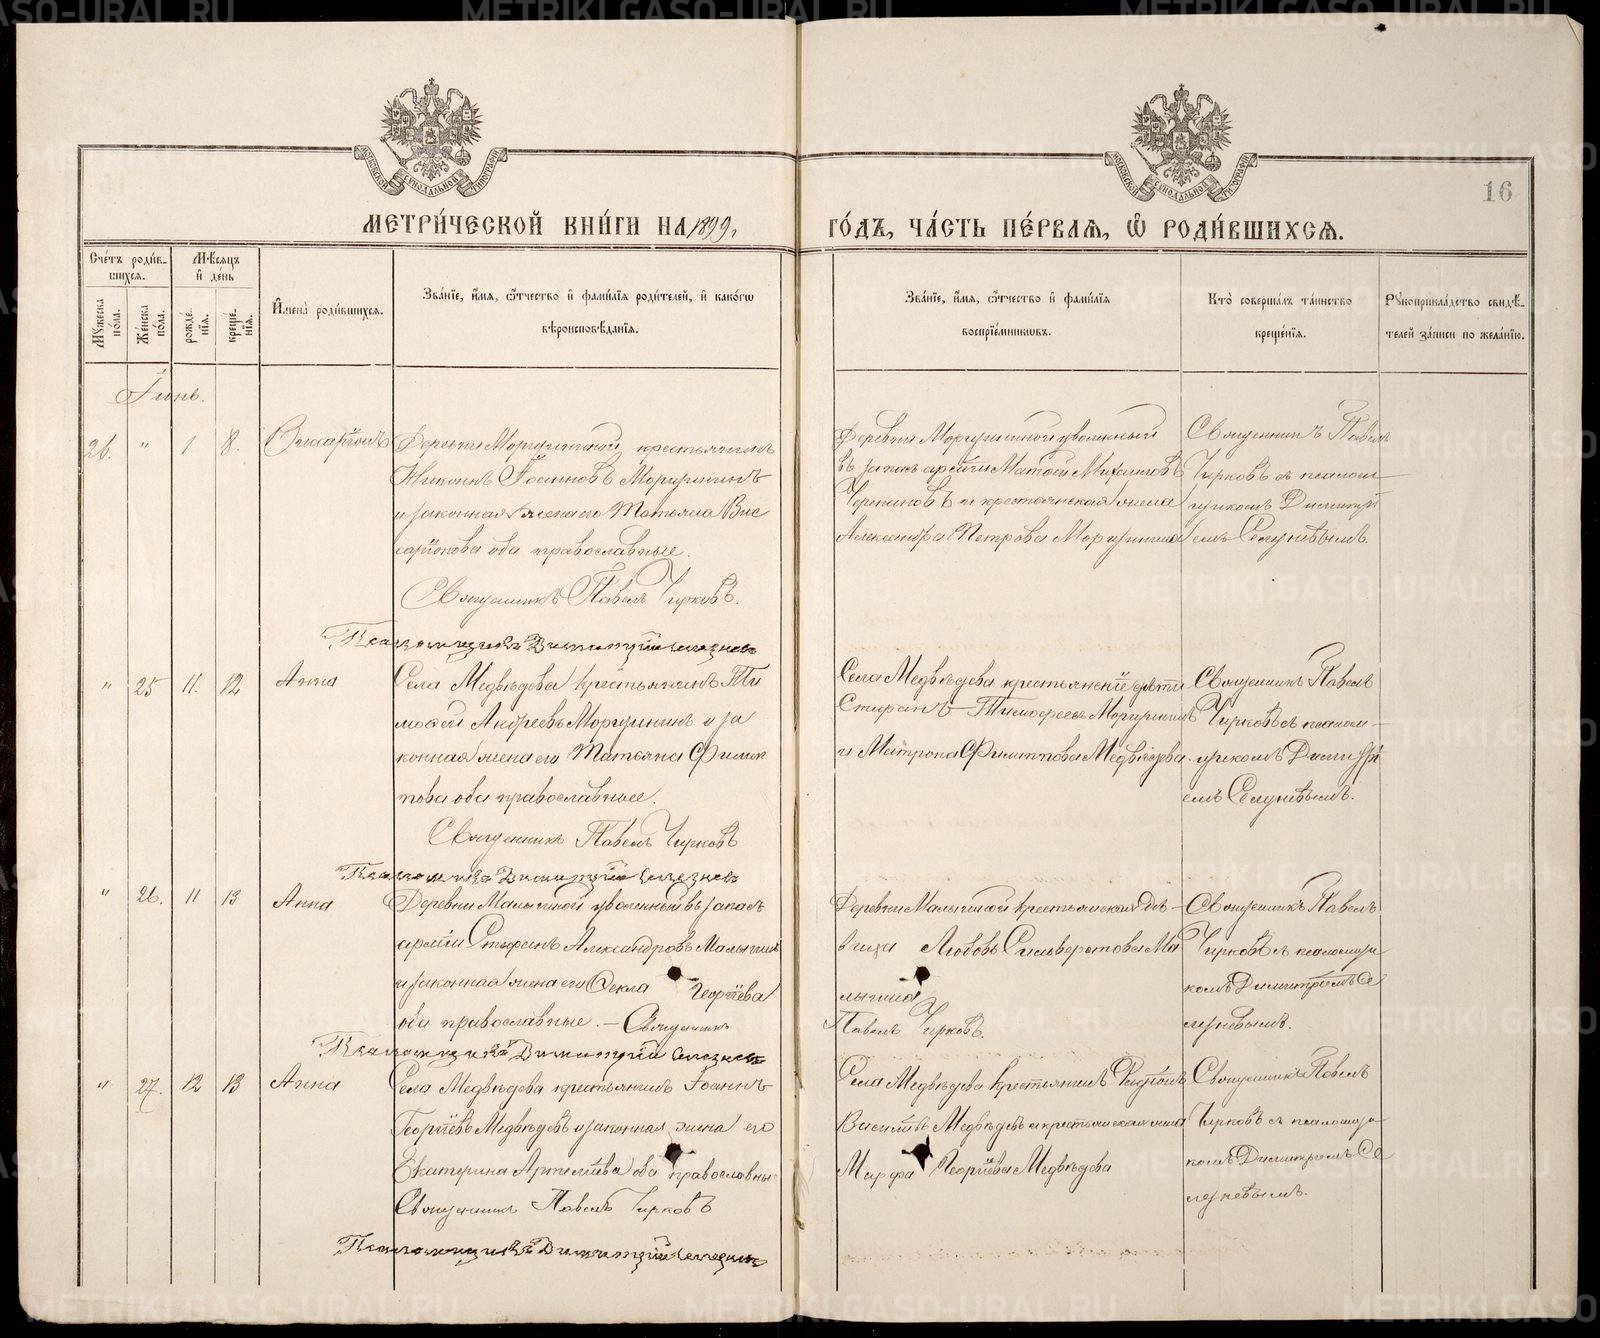 16
МЕТРИ́ЧЕСКОЙ КНИ́ГИ НА 1899,
ГО́ДЪ, ЧА́СТЬ ПЕ́РВАѦ, Ѡ҆ РОДИ́ВШИХСѦ.
Сче́тъ роди́вшихся.
Мѣ́сяцъ и҆ де́нь
Мꙋ́жеска по́ла.
Же́нска по́ла.
рожде́нїѧ.
креще́нїѧ.
И҆мена̀ роди́вшихсѧ.
Зва́нїе, и҆́мѧ, ѻ҆́тчество и҆ фами́лїѧ роди́телей, и҆ како́гѡ
вѣроисповѣ́данїѧ.
Зва́нїе, и҆́мѧ, ѻ҆́тчество и҆ фами́лїѧ
воспрїе́мниковъ.
Кто̀ соверша́лъ та́инство
креще́нїѧ.
Рꙋкоприкла́дство свидѣ́-
телей за́писи по жела́нїю.
Іюнь.
26. " 1 8. Виссаріонъ
Деревни Моршининой крестьянинъ
Никонъ Іоанновъ Моршининъ
и законная жена его Татьяна Вис
саріонова оба православные.
Священникъ Павелъ Чирковъ.
Псаломщикъ Димитрій Селезневъ
Деревни Моршининой уволенный
въ запасъ арміи Матвей Михаиловъ
Черепановъ и крестьянская жена
Александра Петрова Моршинина
Священникъ Павелъ
Чирковъ съ псалом
щикомъ Димитрі
емъ Селезневымъ.
" 25 11. 12 Анна
Села Медвѣдева крестьянинъ Ти
мофей Андреевъ Моршининъ и за
конная жена его Татьяна Филип
пова оба православные.
Священникъ Павелъ Чирковъ
Псаломщикъ Димитрій Селезневъ
Села Медвѣдева крестьянскіе дѣти
Стефанъ Тимофеевъ Моршининъ
и Матрона Филиппова Медвѣдева
Священникъ Павелъ
Чирковъ съ псалом-
щикомъ Димитрі
емъ Селезневымъ.
" 26. 11 13 Анна
Деревни Малыгиной уволенный въ запасъ
арміи Стефанъ Александровъ Малыгинъ
и законная жена его Фекла Георгіева
оба православные. — Священникъ
Псаломщикъ Димитрій Селезневъ
Деревни Малыгиной крестьянская дѣ-
вица Любовь Сильверстова Ма
лыгина
Павелъ Чирковъ.
Священникъ Павелъ
Чирковъ съ псаломщи
комъ Димитріемъ Се
лезневымъ.
" 27. 12 13 Анна
Села Медвѣдева крестьянинъ Іоаннъ
Георгіевъ Медвѣдевъ и законная жена его
Екатерина Артеміева оба православны
Священникъ Павелъ Чирковъ
Псаломщикъ Димитрій Селезневъ
Села Медвѣдева крестьянинъ
Василіевъ Медвѣдевъ и крестьянская жена
Марфа Георгіева Медвѣдева
Священникъ Павелъ
Чирковъ съ псаломщи
комъ Димитріемъ Се
лезневымъ.
METRIKI.GASO-URAL.RU